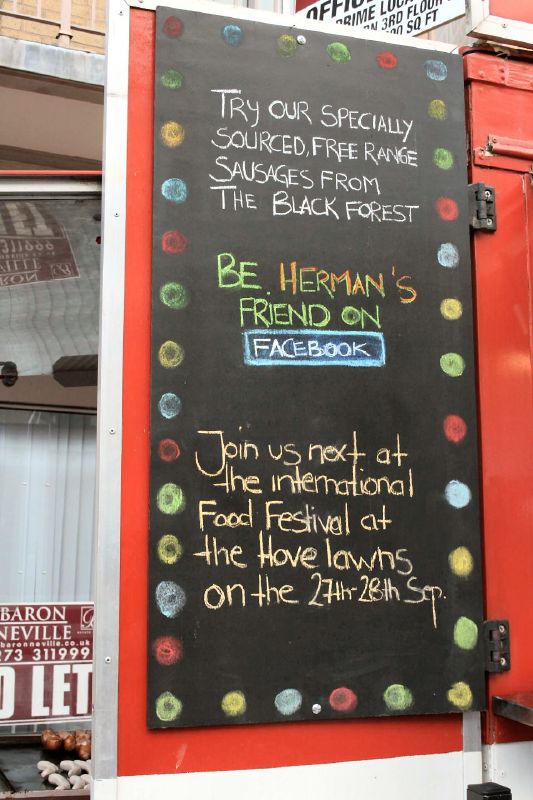 OFFIC
PRIME LOC
N 3RD FLOOR
00 SQ FT
TRY OUR SPECIALLY
SOURCED, FREE RANGE
SAUSAGES FROM
THE BLACK FOREST
BE. HERMAN'S
FRIEND ON
FACEBOOK
Join us next at
the international
Food Festival at
the Hove lawns
on the 27th-28th Sep.
BARON
NEVILLE
baronneville.co.uk
273 311999
O LET